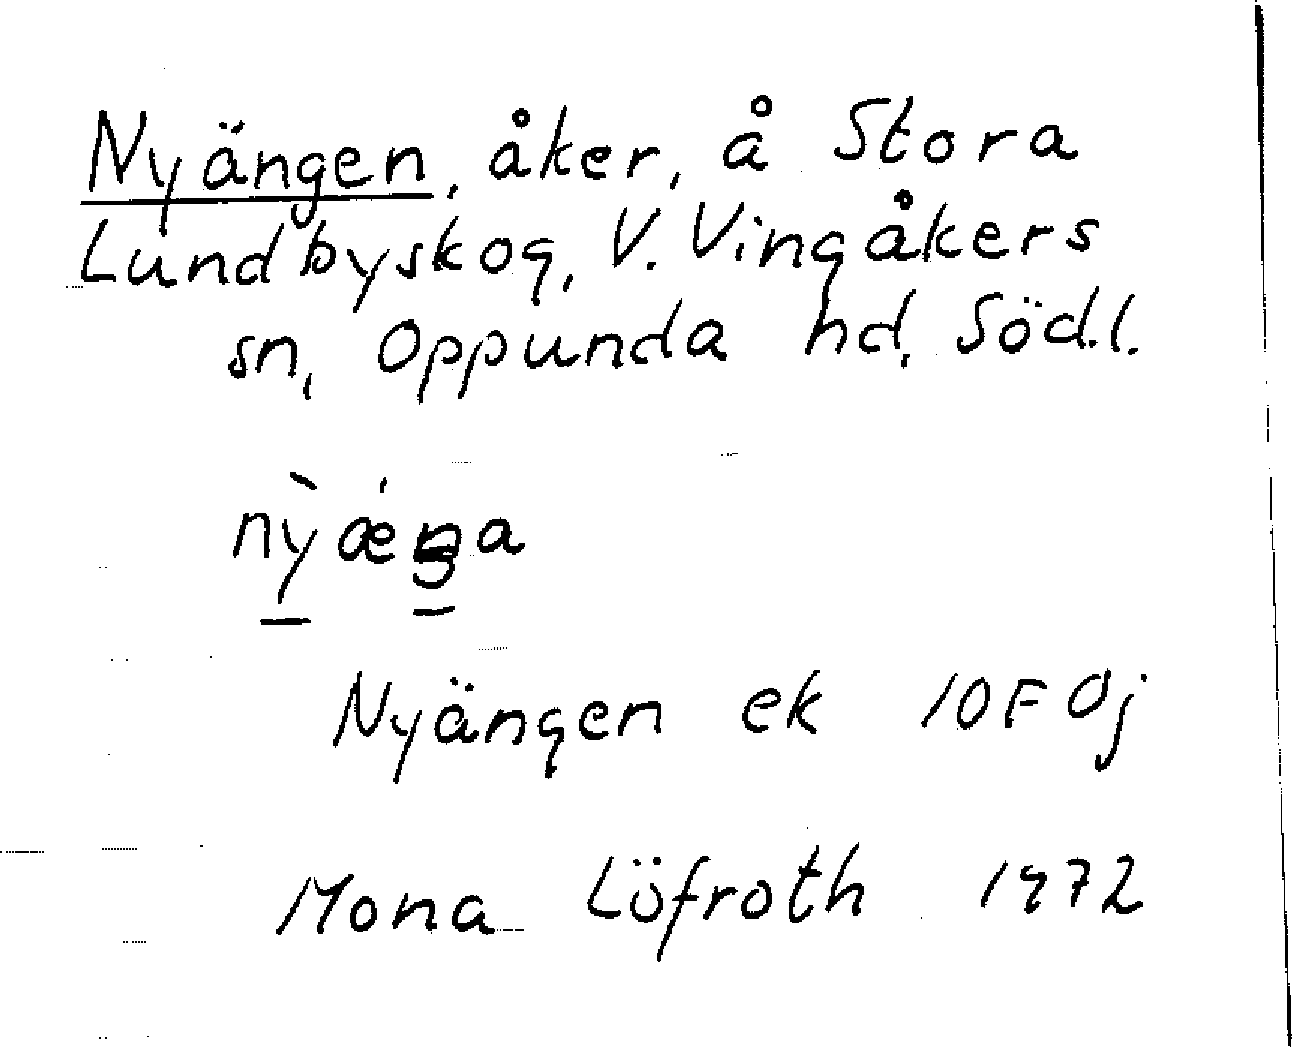 Nyängen, åker, å Stora
Lundbyskog, V. Vingåkers
sn, Oppunda hd, Södl.
nỳǽŋa
Nyängen ek 10F 0j
Mona Löfroth 1972